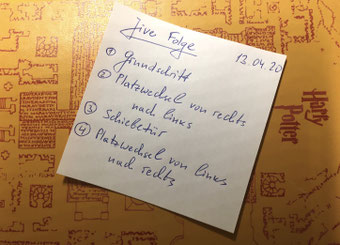 Jive Folge
13.04.20
① Grundschritt
② Platzwechsel von rechts
nach links
③ Schiebetür
④ Platzwechsel von links
nach rechts
Harry
Potter